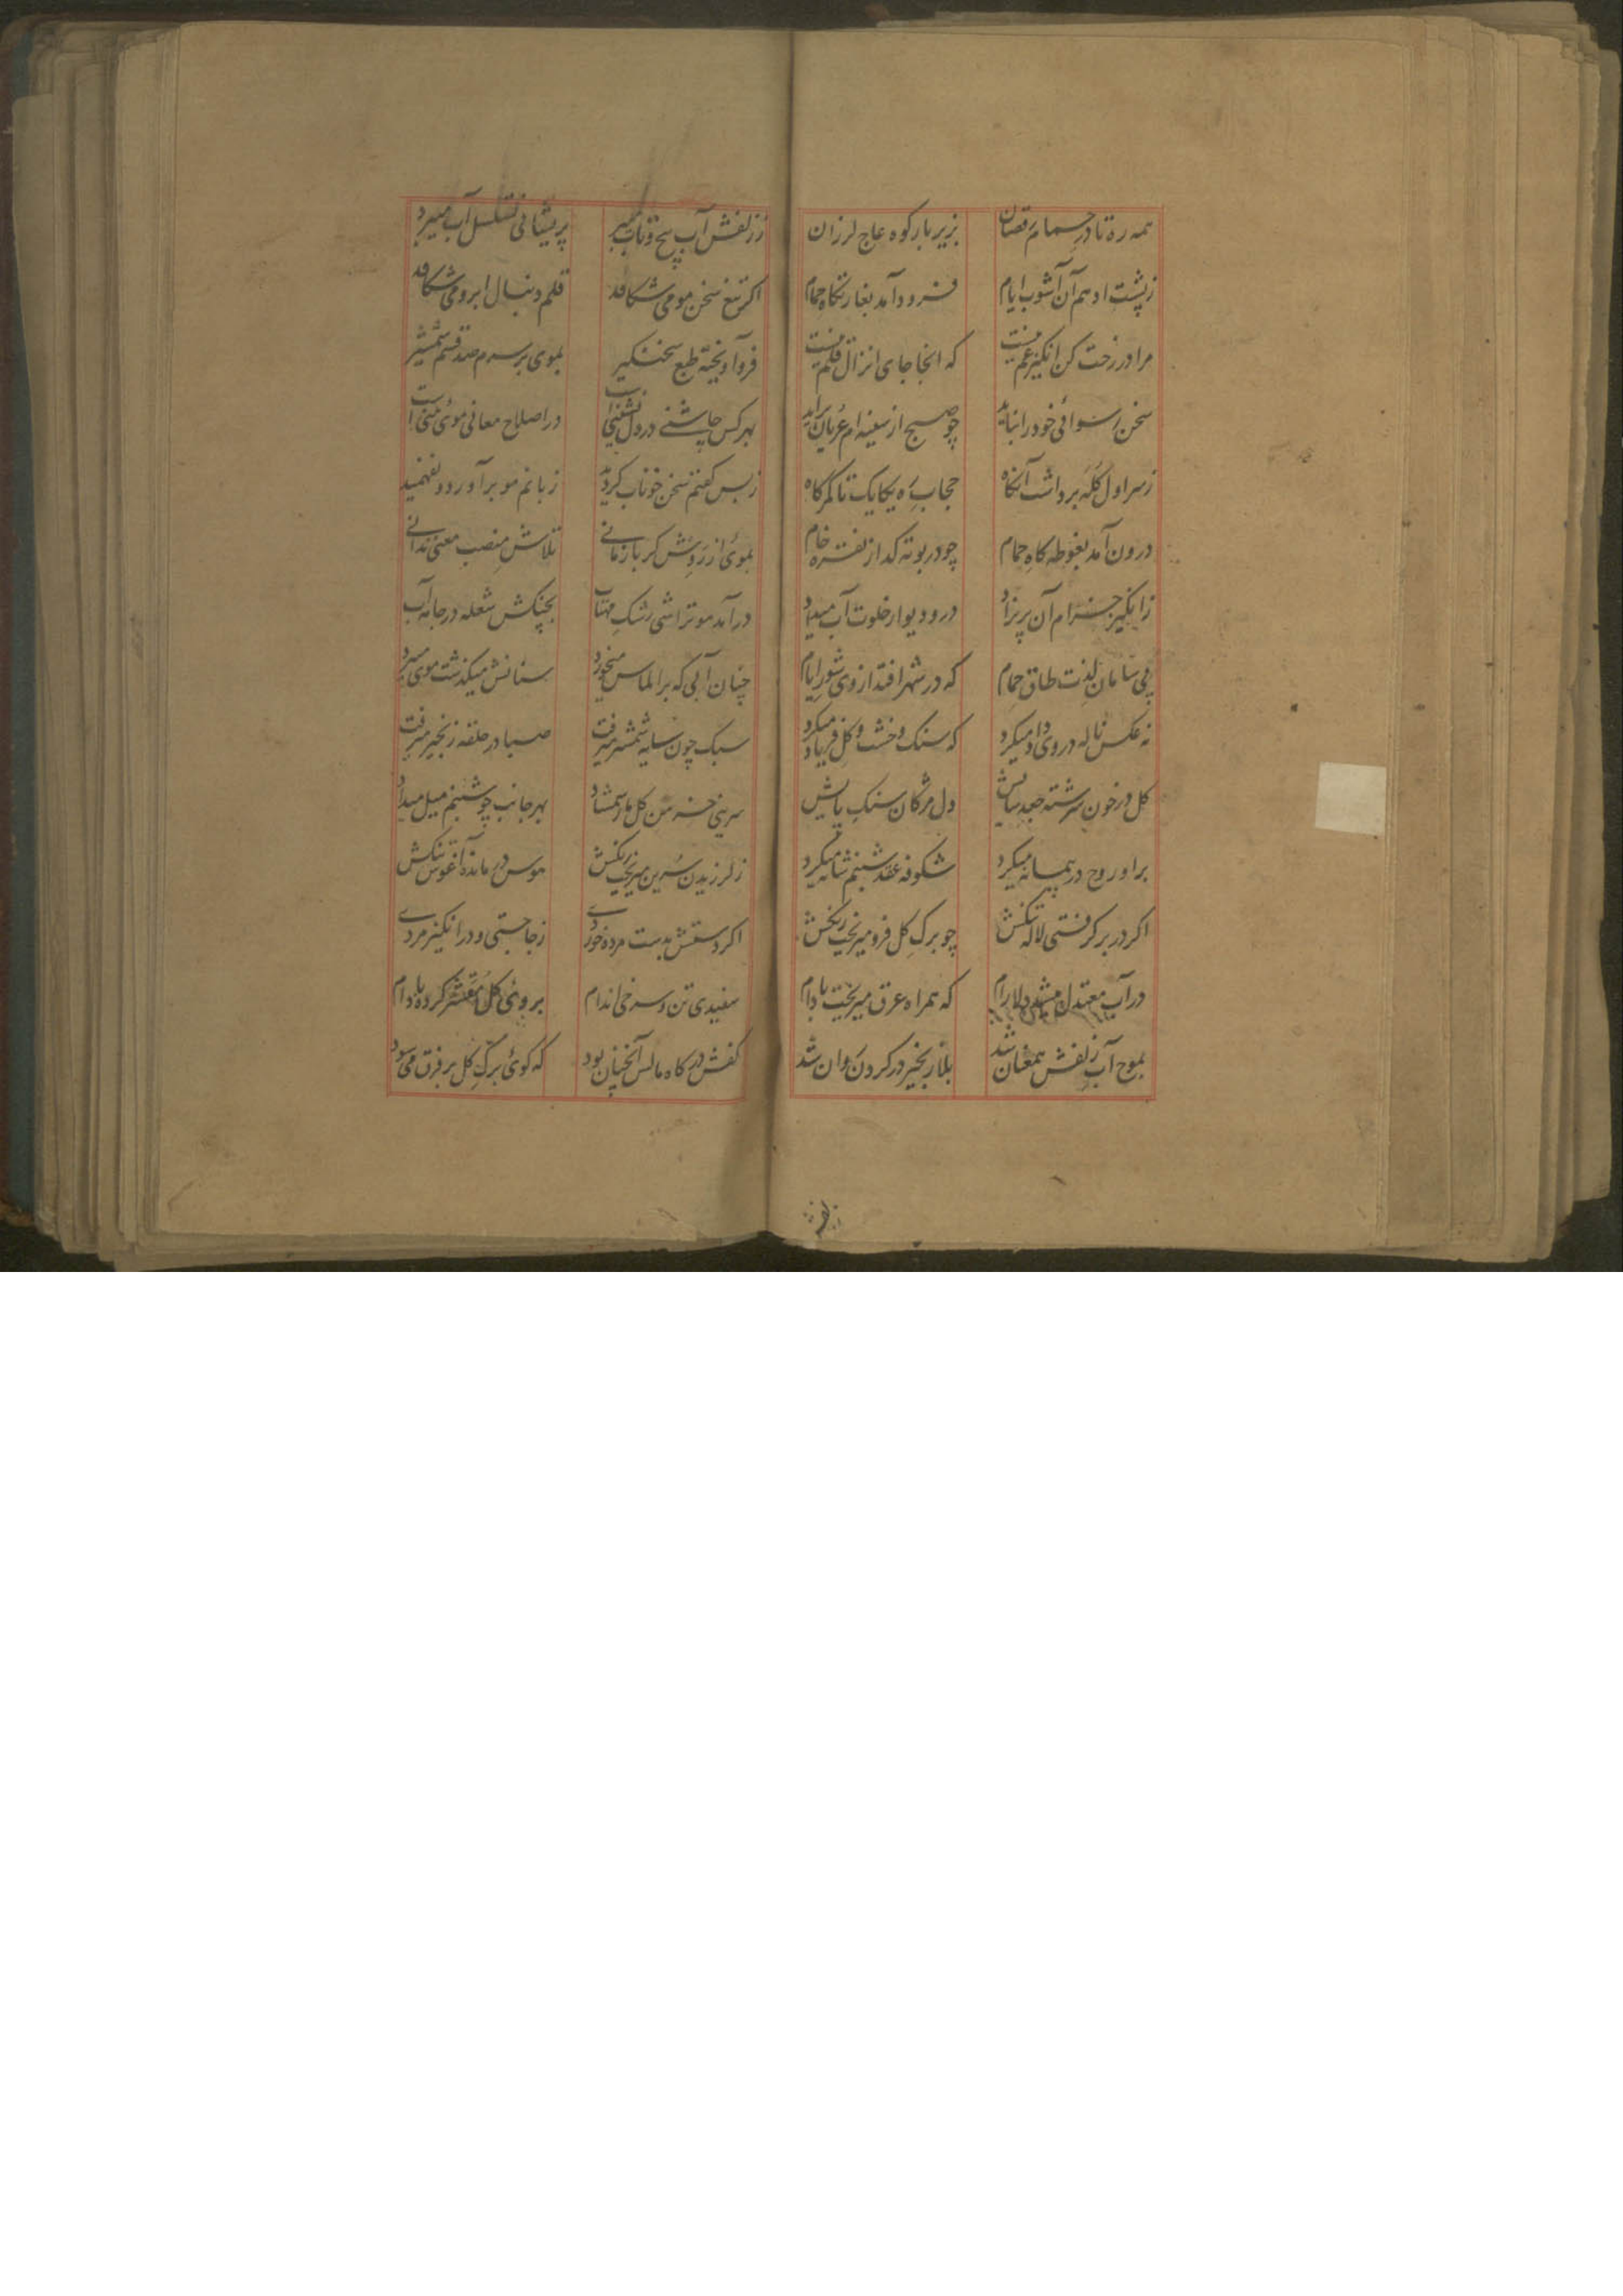 همه ره تا در حمام رقصان بزیر بار کوه عاج لرزان
ز پشت ادهم آن آشوب ایام فرود آمد بغارتکاه حمام
مرا در رخت کن انکیز غم نیست که اینجا جای انزال قلم نیست
سخن رسوائی خود را نباید چو صبح از سینه ام عریان براید
ز سر اول کله برداشت آنکاه حجاب ره یکایک تا کمرکاه
درون آمد بغوطه کاه حمام چو در بوته کداز نقره خام
ز انکیز خرام آن پریزاد در و دیوار خلوت آب میداد
پی سامان لذت طاق حمام که در شهر افتد از وی شور ایام
نه عکس ناله در وی داد میکرد که سنک و خشت و کل فریاد میکرد
کل در خون سرشته جبه سایش دل مژکان سنک پایش
برا و روح در پیمانه میکرد شکوفه عقد شبنم شانه میکرد
اکر در بر کرفتی لاله تنکش چو برک کل فرو میریخت رنکش
در آب معتدل میشد دلارام که همراه عرق میریخت بادام
بموج آب زلفش همعنان شد بلا زنجیر در کردن روان شد
ز زلفش آب پیچ و تاب میبرد پریشانی تسلسل آب میبرد
اکر تیغ سخن مو می شکافد قلم دنبال ابرو می شکافد
فرو آویخته طبع سخنکیر بموی بر سرم صد قسم شمشیر
بهر کس چاشنی در دل نشینی است در اصلاح معانی موی بینی است
ز بس کفتم سخن خوناب کردید زبانم مو برآورد و نفهمید
بموی از روش کر باز مانی تلاش منصب معنی ندانی
درآمد مو تراشی رشک مهتاب بچنکش شعله در جامه آب
چنان آبی که بر الماس میخورد سنانش میکذشت موی میبرد
سبک چون سایه شمشیر میرفت صبا در حلقه زنجیر میرفت
سرینی خرمن کل بار شمشاد بهر جانب چو شبنم میل میداد
ز لرزیدن سرین میریخت رنکش هوس در مانده آغوش تنکش
اکر دستش بدست مرده خوردی ز جا جستی و در انکیز مردی
سفیدی تن و سرخی اندام بروی کل مقشر کرده بادام
کفش در کاه مالش آنچنان بود که کوئی برک کل بر فرق می سود